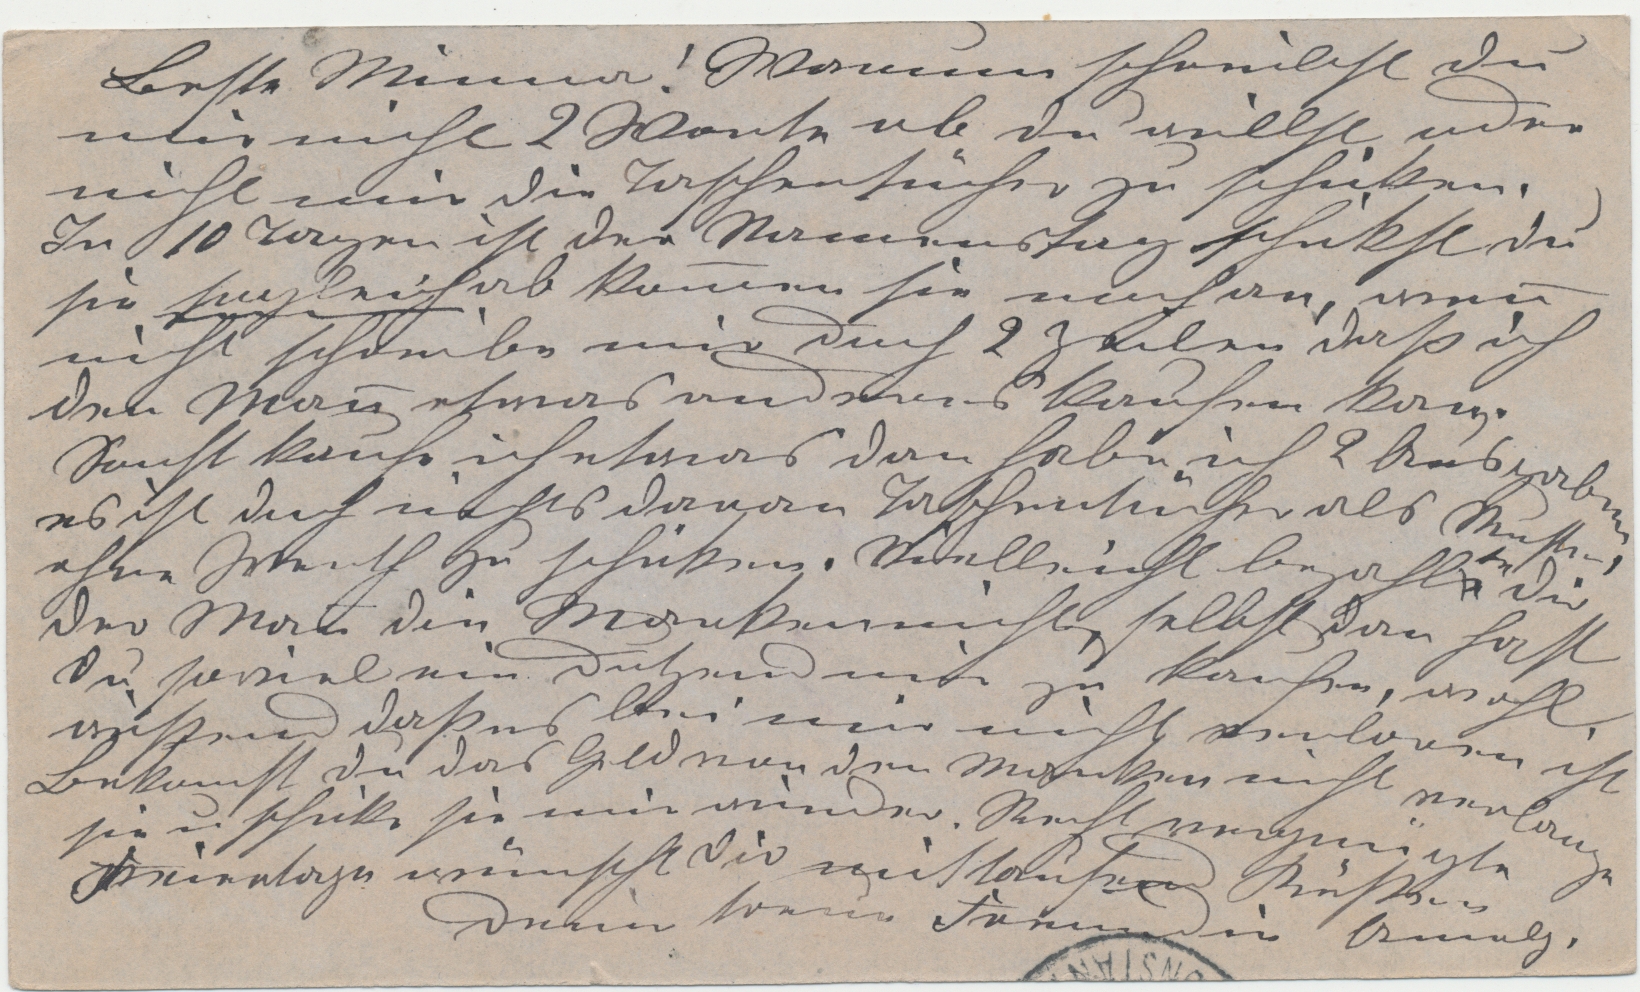 Beste Minna! Warum schreibst du
mir nicht 2 Worte ob du willst oder
nicht mir die Taschentücher zu schiken.
In 10 Tagen ist der Namenstag schikst du
sie sogleich ab kom̅en sie noch an, wen̅
nicht schreibe mir doch 2 Zeilen daß ich
den Man̅ etwas anderes kaufen kan.
Sonst kaufe ich etwas dan habe ich 2 Ausgaben
es ist doch nichts daran Taschentücher als Muster
ohne Werth zu schiken. Vielleicht bezahlte dir
der Man̅ die Marken nicht, selbst dan hast
du soviel ein Dutzend mir zu kaufen, wohl
wißend daß es bei mir nicht verloren ist
Bekomst du das Geld von den Marken nicht verlange
sie u schike sie mir wieder. Recht vergnügte
Feiertage wünscht dir mit tausend Küßen
Deine treue Freundin
NSTAN